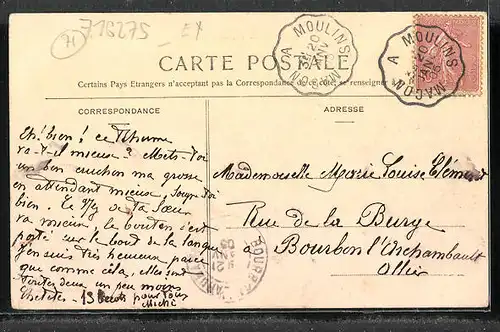 H 718275 EX
MOULINS A MACON
MOULINS A MACON
CARTE POSTALE
Certains Pays Etrangers n'acceptent pas la Correspondance de ce côté, se renseigner
CORRESPONDANCE
ADRESSE
Eh! bien! ce Rhume
va-t-il mieux? Mets-toi
un bon cuchon ma grosse
en attendant mieux, Soigne toi
bien. Le Nez de ta Sœur
va mieux le bouton s'est
porté sur le bout de la langue
J'en suis très heureux parce
que comme cela, elles se
deux un peu moins
13 pour tous
Mademoiselle Marie Louise Clément
Rue de la Burge
à Bourbon l'Archambault
Allier
BOURBON